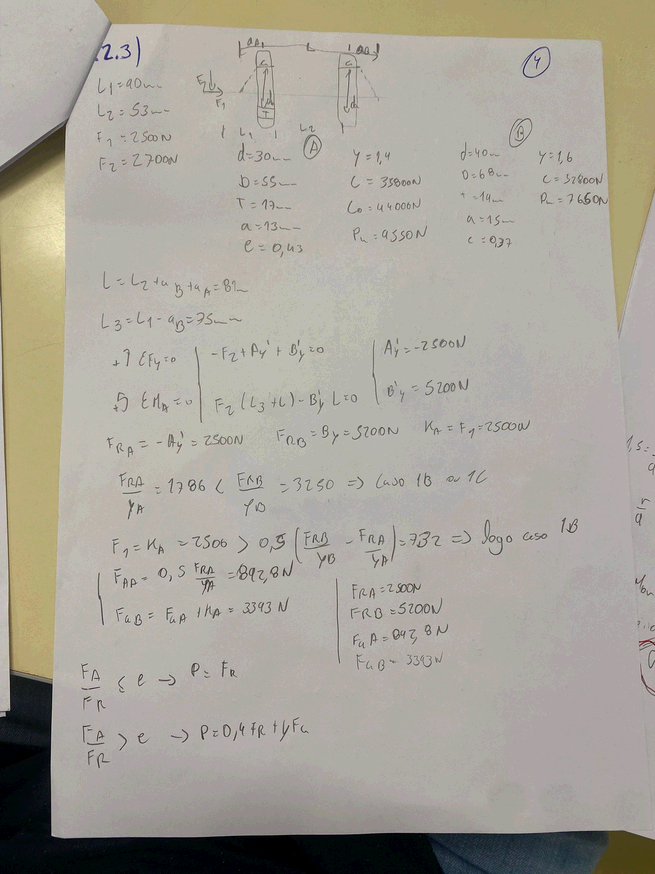 2.3)
4
L
L₁=90mm
L₂=53mm
F₁=2500N
F₂=2700N
F₂
F₁
L₁
L₂
A
d=30mm
D=55mm
T=17mm
a=13mm
e=0,43
Y=1,4
C=35800N
C₀=44000N
Pu=4550N
B
d=40mm
D=68mm
a=15mm
e=0,37
Y=1,6
C=52800N
Pu=7650N
L=L₂+a_B+a_A=81mm
L₃=L₁-a_B=75mm
+↑ΣFy=0
-F₂+Ay'+B'y=0
A'y=-2500N
ΣM_A=0
F₂(L₃+L)-B'y L=0
B'y=5200N
F_RA=-Ay'=2500N F_RB=By=5200N K_A=F₁=2500N
F_RA/Y_A=1786 < F_RB/Y_B=3250 => Caso 1B ou 1C
F₁=K_A=2500 > 0,5(F_RB/Y_B - F_RA/Y_A)=732 => logo caso 1B
F_aA=0,5 F_RA/Y_A=892,8N
F_aB=F_aA+K_A=3393N
F_RA=2500N
F_RB=5200N
F_aA=892,8N
F_aB=3393N
F_A/F_R ≤ e → P=F_R
F_A/F_R > e → P=0,4F_R+yF_a